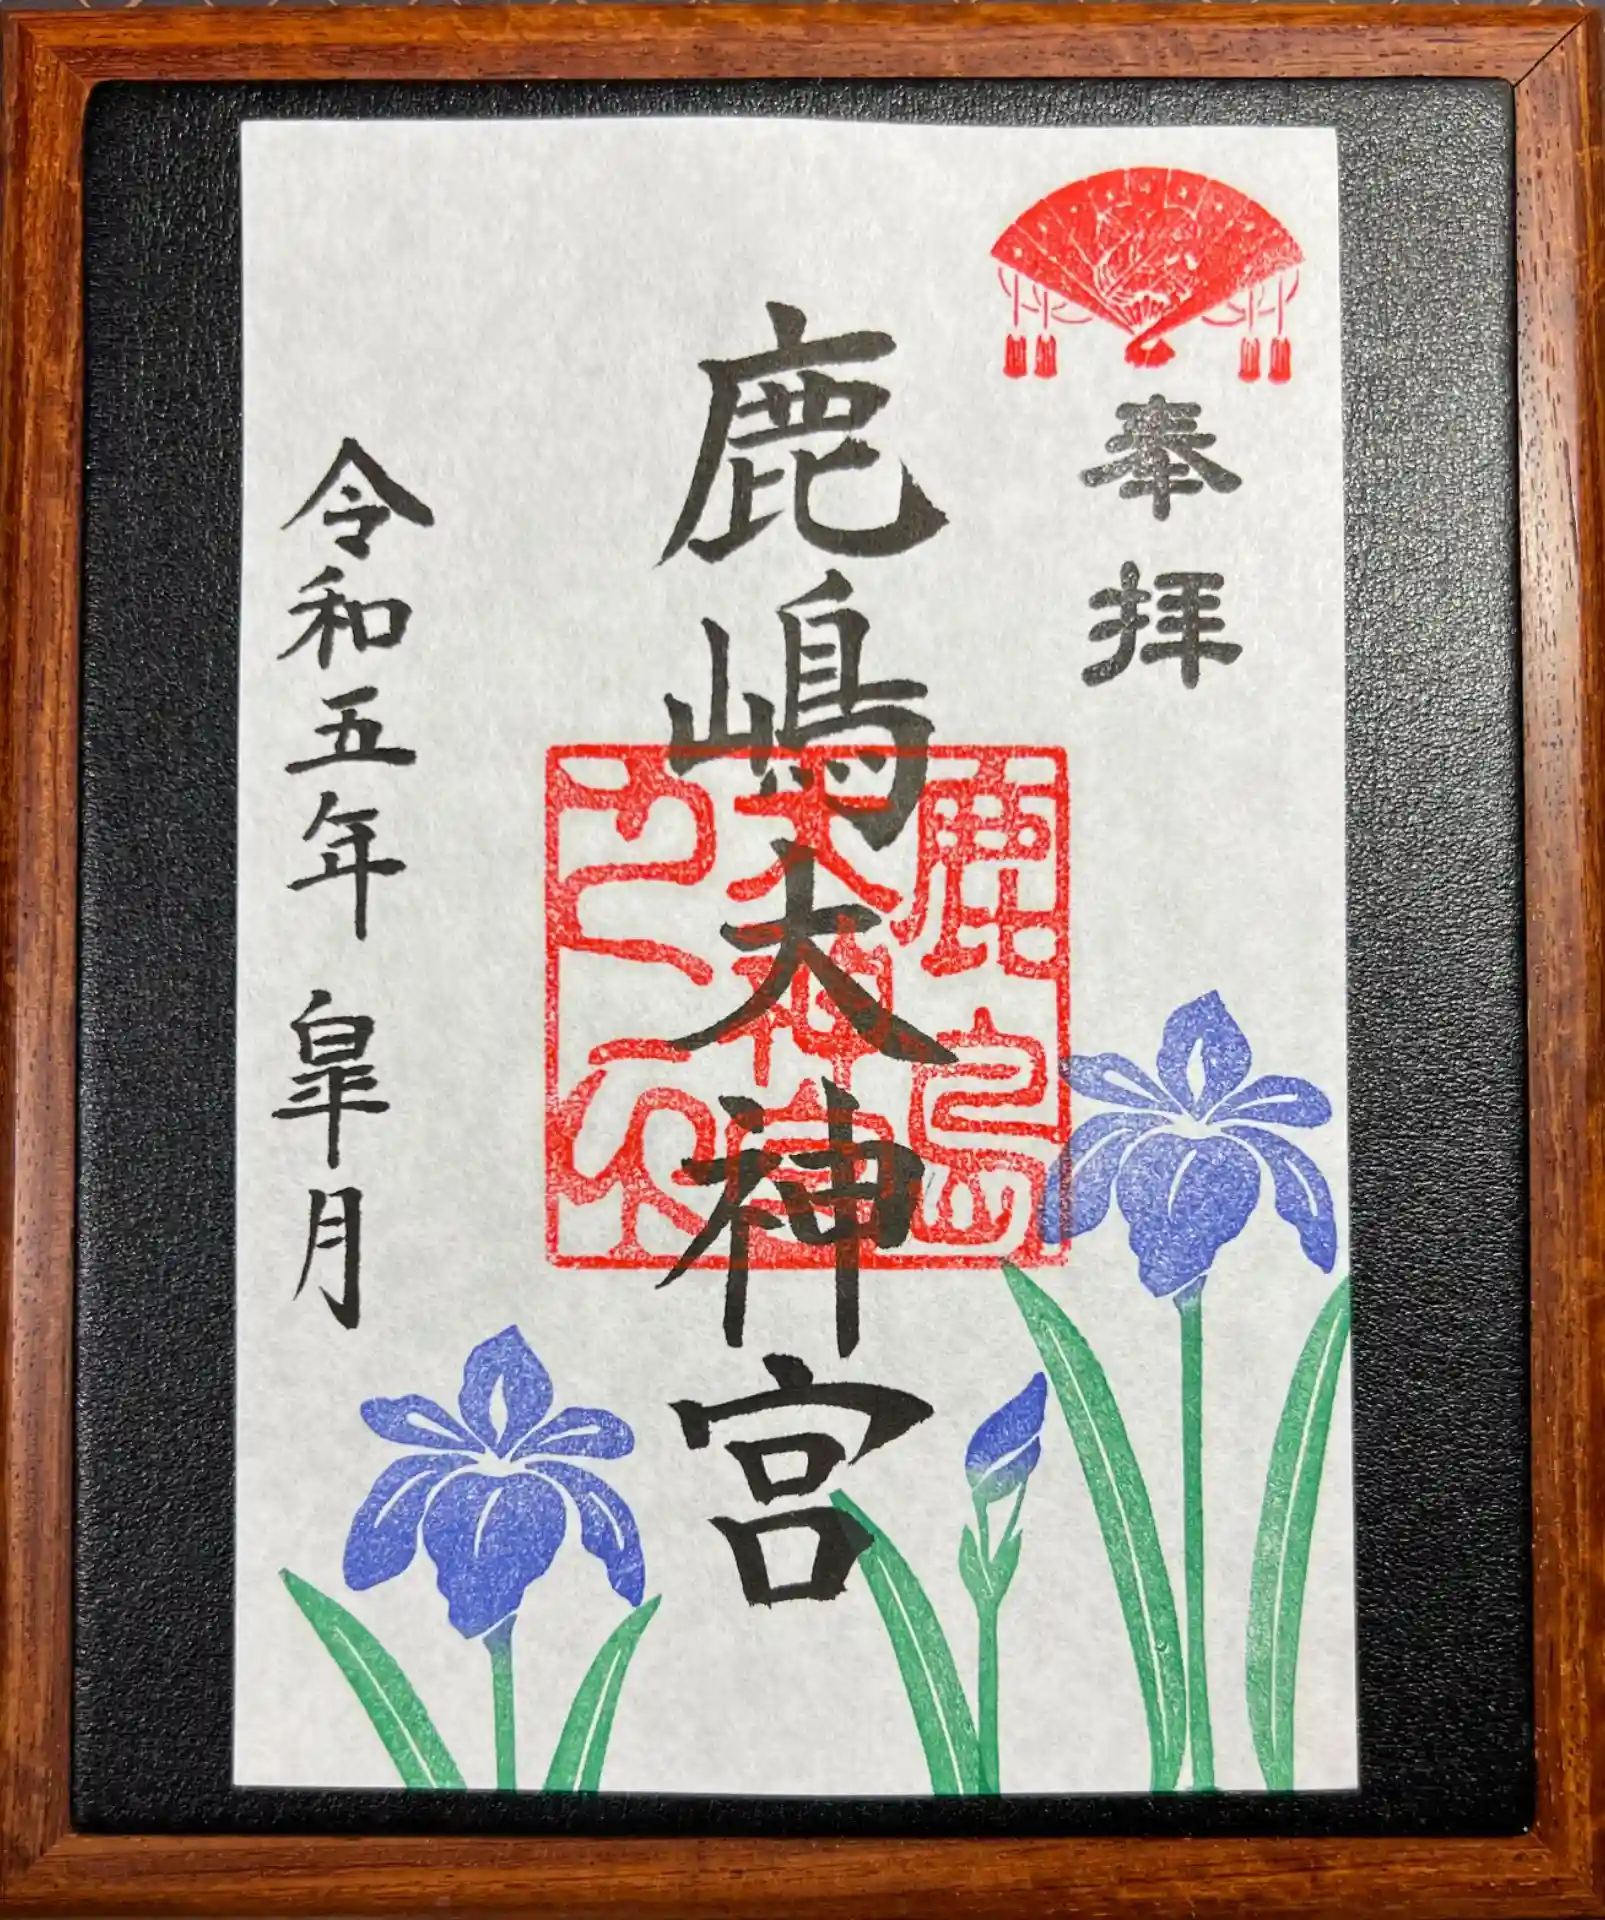 奉拝
鹿嶋大神宮
鹿島
大神宮
之印
令和五年 皐月